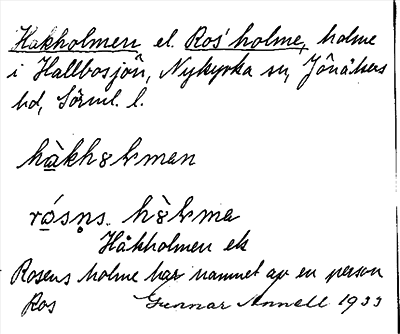 Håkholmen el. Ros' holme, holme
i Hallbosjön, Nykyrka sn, Jönåkers
hd, Sörml. l.
hàkhꝏlman
rósn̥s. hòlma
Håkholmen el
Rosens holme har namnet av en person
Ros Gunnar Annell 1933